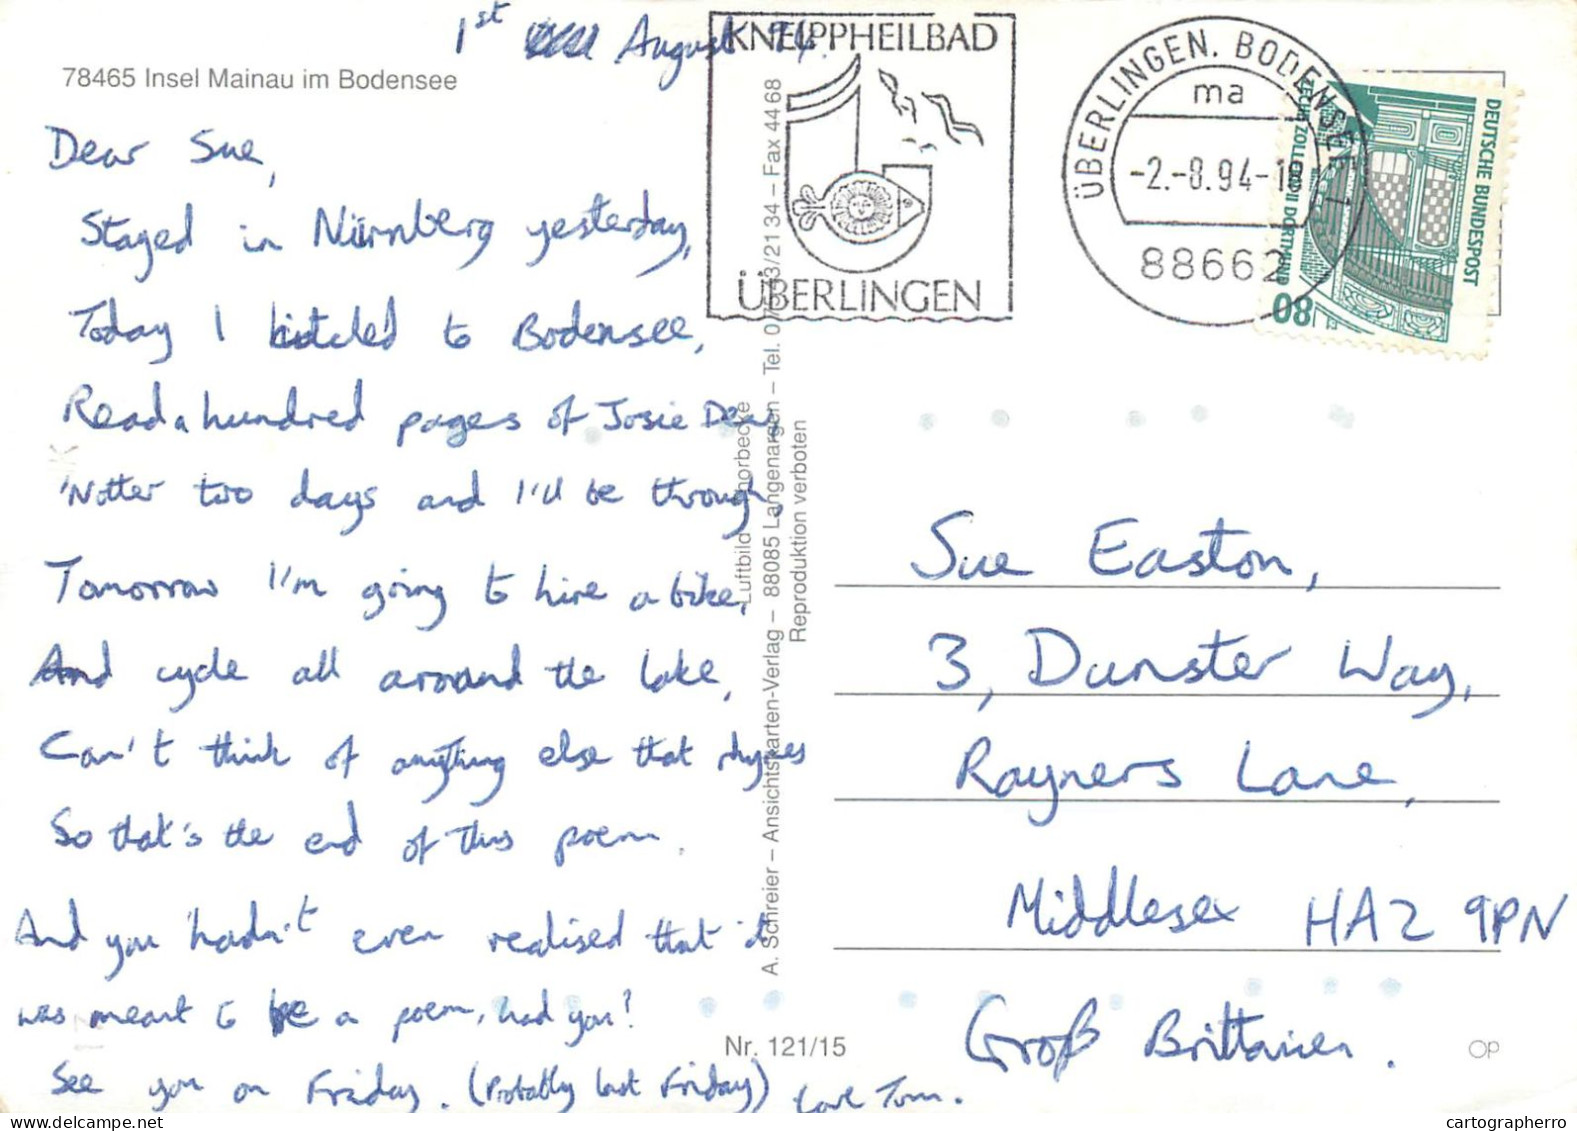 1st August 94.
78465 Insel Mainau im Bodensee
Dear Sue,
Stayed in Nürnberg yesterday,
Today I hitched to Bodensee,
Read a hundred pages of Josie Dew
'Notter two days and I'll be through,
Tomorrow I'm going to hire a bike,
And cycle all around the lake,
Can't think of anything else that rhymes
So that's the end of this poem.
And you hadn't even realised that it
was meant to be a poem, had you?
See you on Friday. (Probably last Friday) Love Tom.
KNEIPPHEILBAD
ÜBERLINGEN
ÜBERLINGEN, BODENSEE 1
ma
-2.-8.94-18
88662
DEUTSCHE BUNDESPOST
ZECHE ZOLLERN II DORTMUND
80
Luftbild Thorbecke
A. Schreier – Ansichtskarten-Verlag – 88085 Langenargen – Tel. 07543/21 34 – Fax 44 68
Reproduktion verboten
Sue Easton,
3, Dunster Way,
Rayners Lane,
Middlesex HA2 9PN
Groß Brittanien.
Nr. 121/15
OP
cartographerro